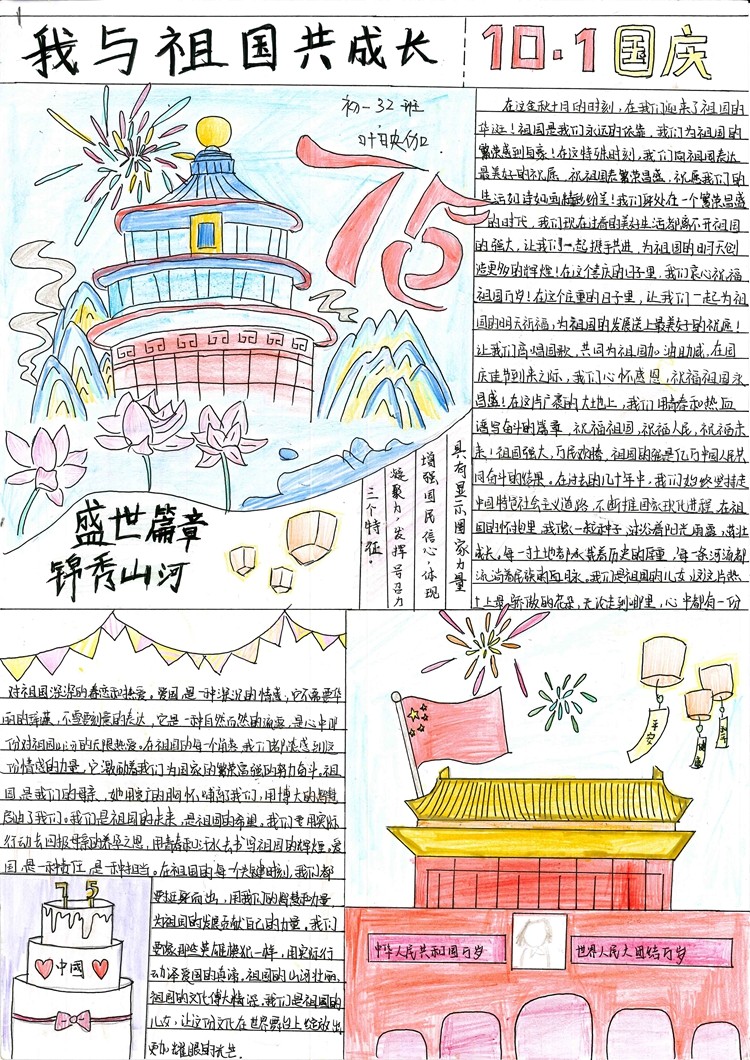 我与祖国共成长
10.1国庆
初一32班
75
在这金秋十月的时刻，在我们迎来了祖国的
华诞！祖国是我们永远的依靠，我们为祖国的
繁荣感到自豪！在这特殊时刻，我们向祖国表达
最美好的祝愿，祝祖国泰繁荣昌盛，祝愿我们的
生活如诗如画精彩纷呈！我们身处在一个繁荣昌盛
的时代，我们现在过着的美好生活都离不开祖国
的强大，让我们一起携手共进，为祖国的明天创
造更多的辉煌！在这个喜庆的日子里，我们衷心祝福
祖国万岁！在这个庄重的日子里，让我们一起为祖
国的明天祈福，为祖国的发展送上最美好的祝愿！
让我们高唱国歌，共同为祖国加油助威，在国
庆佳节到来之际，我们心怀感恩，祝福祖国永
昌盛！在这片广袤的大地上，我们用青春和热血
谱写奋斗的篇章，祝福祖国，祝福人民，祝福未
来！祖国强大，万民欢腾，祖国的强是亿万中国人民共
同奋斗的结果。在过去的几十年中，我们始终坚持走
中国特色社会主义道路，不断推国家现代化进程，在祖
国的怀抱里，我像一粒种子，沐浴着阳光雨露，茁壮
成长。每一寸土地都承载着历史的厚重，每一条河流都
流淌着民族的血脉。我们是祖国的儿女，是这片热
土上最骄傲的花朵，无论走到哪里，心中都有一份
具有显示国家力量
增强国民信心，体现
凝聚力，发挥号召力
三个特征。
盛世篇章
锦秀山河
对祖国深深的眷恋和热爱。爱国，是一种深沉的情感，它不需要华
丽的辞藻，不需要刻意的表达，它是一种自然而然的流露，是心中那
份对祖国山河的无限热爱。在祖国的每一个角落，我们都能感到这
份情感的力量，它激励着我们为国家的繁荣富强而努力奋斗。祖
国，是我们的母亲，她用宽广的胸怀，哺育我们，用博大的智慧
启迪了我们。我们是祖国的未来，是祖国的希望。我们要用实际
行动去回报母亲的养育之恩，用青春和汗水去书写祖国的辉煌。爱
国，是一种责任，是一种担当。在祖国的每一个关键时刻，我们都
要挺身而出，用我们的智慧和力量
为祖国的发展贡献自己的力量。我们
要像那些英雄模范一样，用实际行
动诠爱国的真谛，祖国的山河壮丽，
祖国的文化博大精深，我们是祖国的
儿女，让这份文化在世界舞台上绽放出
更加耀眼的光芒。
75
中国
平安
健康
中华人民共和国万岁
世界人民大团结万岁